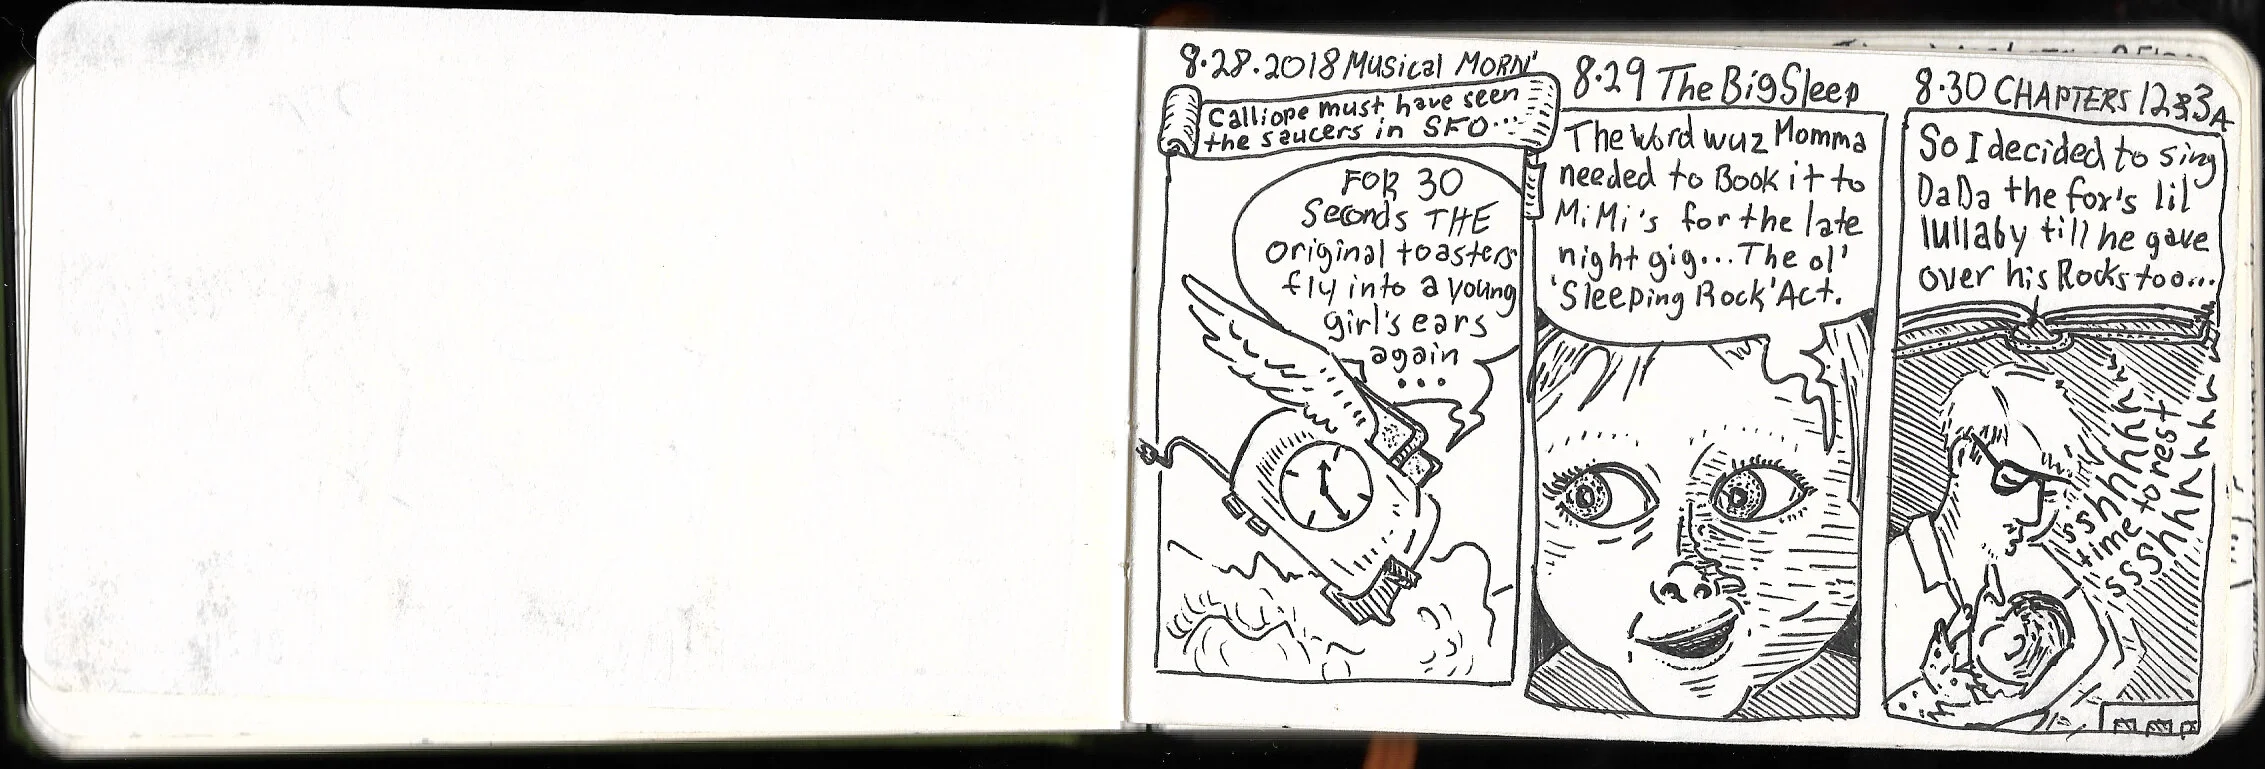 8.28.2018 Musical MORN'
Calliope must have seen
the saucers in SFO...
FOR 30
Seconds THE
original toasters
fly into a young
girl's ears
again
...
8.29 The Big Sleep
The Word wuz Momma
needed to Book it to
MiMi's for the late
night gig... The ol'
'Sleeping Rock' Act.
8.30 CHAPTERS 12&3A
So I decided to sing
DaDa the fox's lil
lullaby till he gave
over his Rocks too...
sshhhhh
time to rest
ssshhhhhhhh